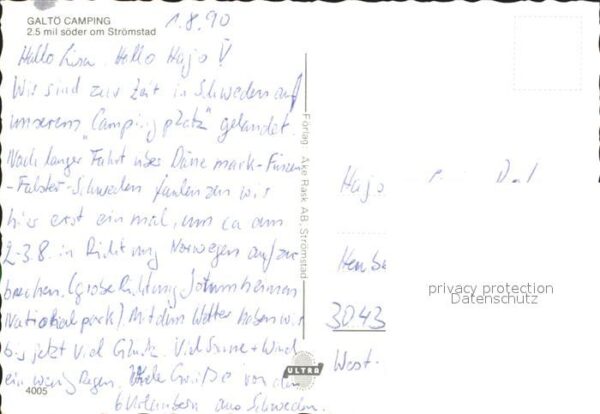 GALTÖ CAMPING
2.5 mil söder om Strömstad
1.8.90
Hallo Lisa. Hallo Hajo!
Wir sind zur Zeit in Schweden auf
unserem "Campingplatz" gelandet.
Nach langer Fahrt über Dänemark-Fünen
-Falster-Schweden faulenzen wir
hier erst einmal, um ca am
2-3.8. in Richtung Norwegen aufzu
brechen. (grobe Richtung Jotunheimen
Nationalpark). Mit dem Wetter haben wir
bis jetzt viel Glück. Viel Sonne + Wind
ein wenig Regen. Viele Grüße von den
6 Urlaubern aus Schweden.
4005
Förlag: Åke Rask AB, Strömstad
ULTRA
Hajo
privacy protection
Datenschutz
3043
West-